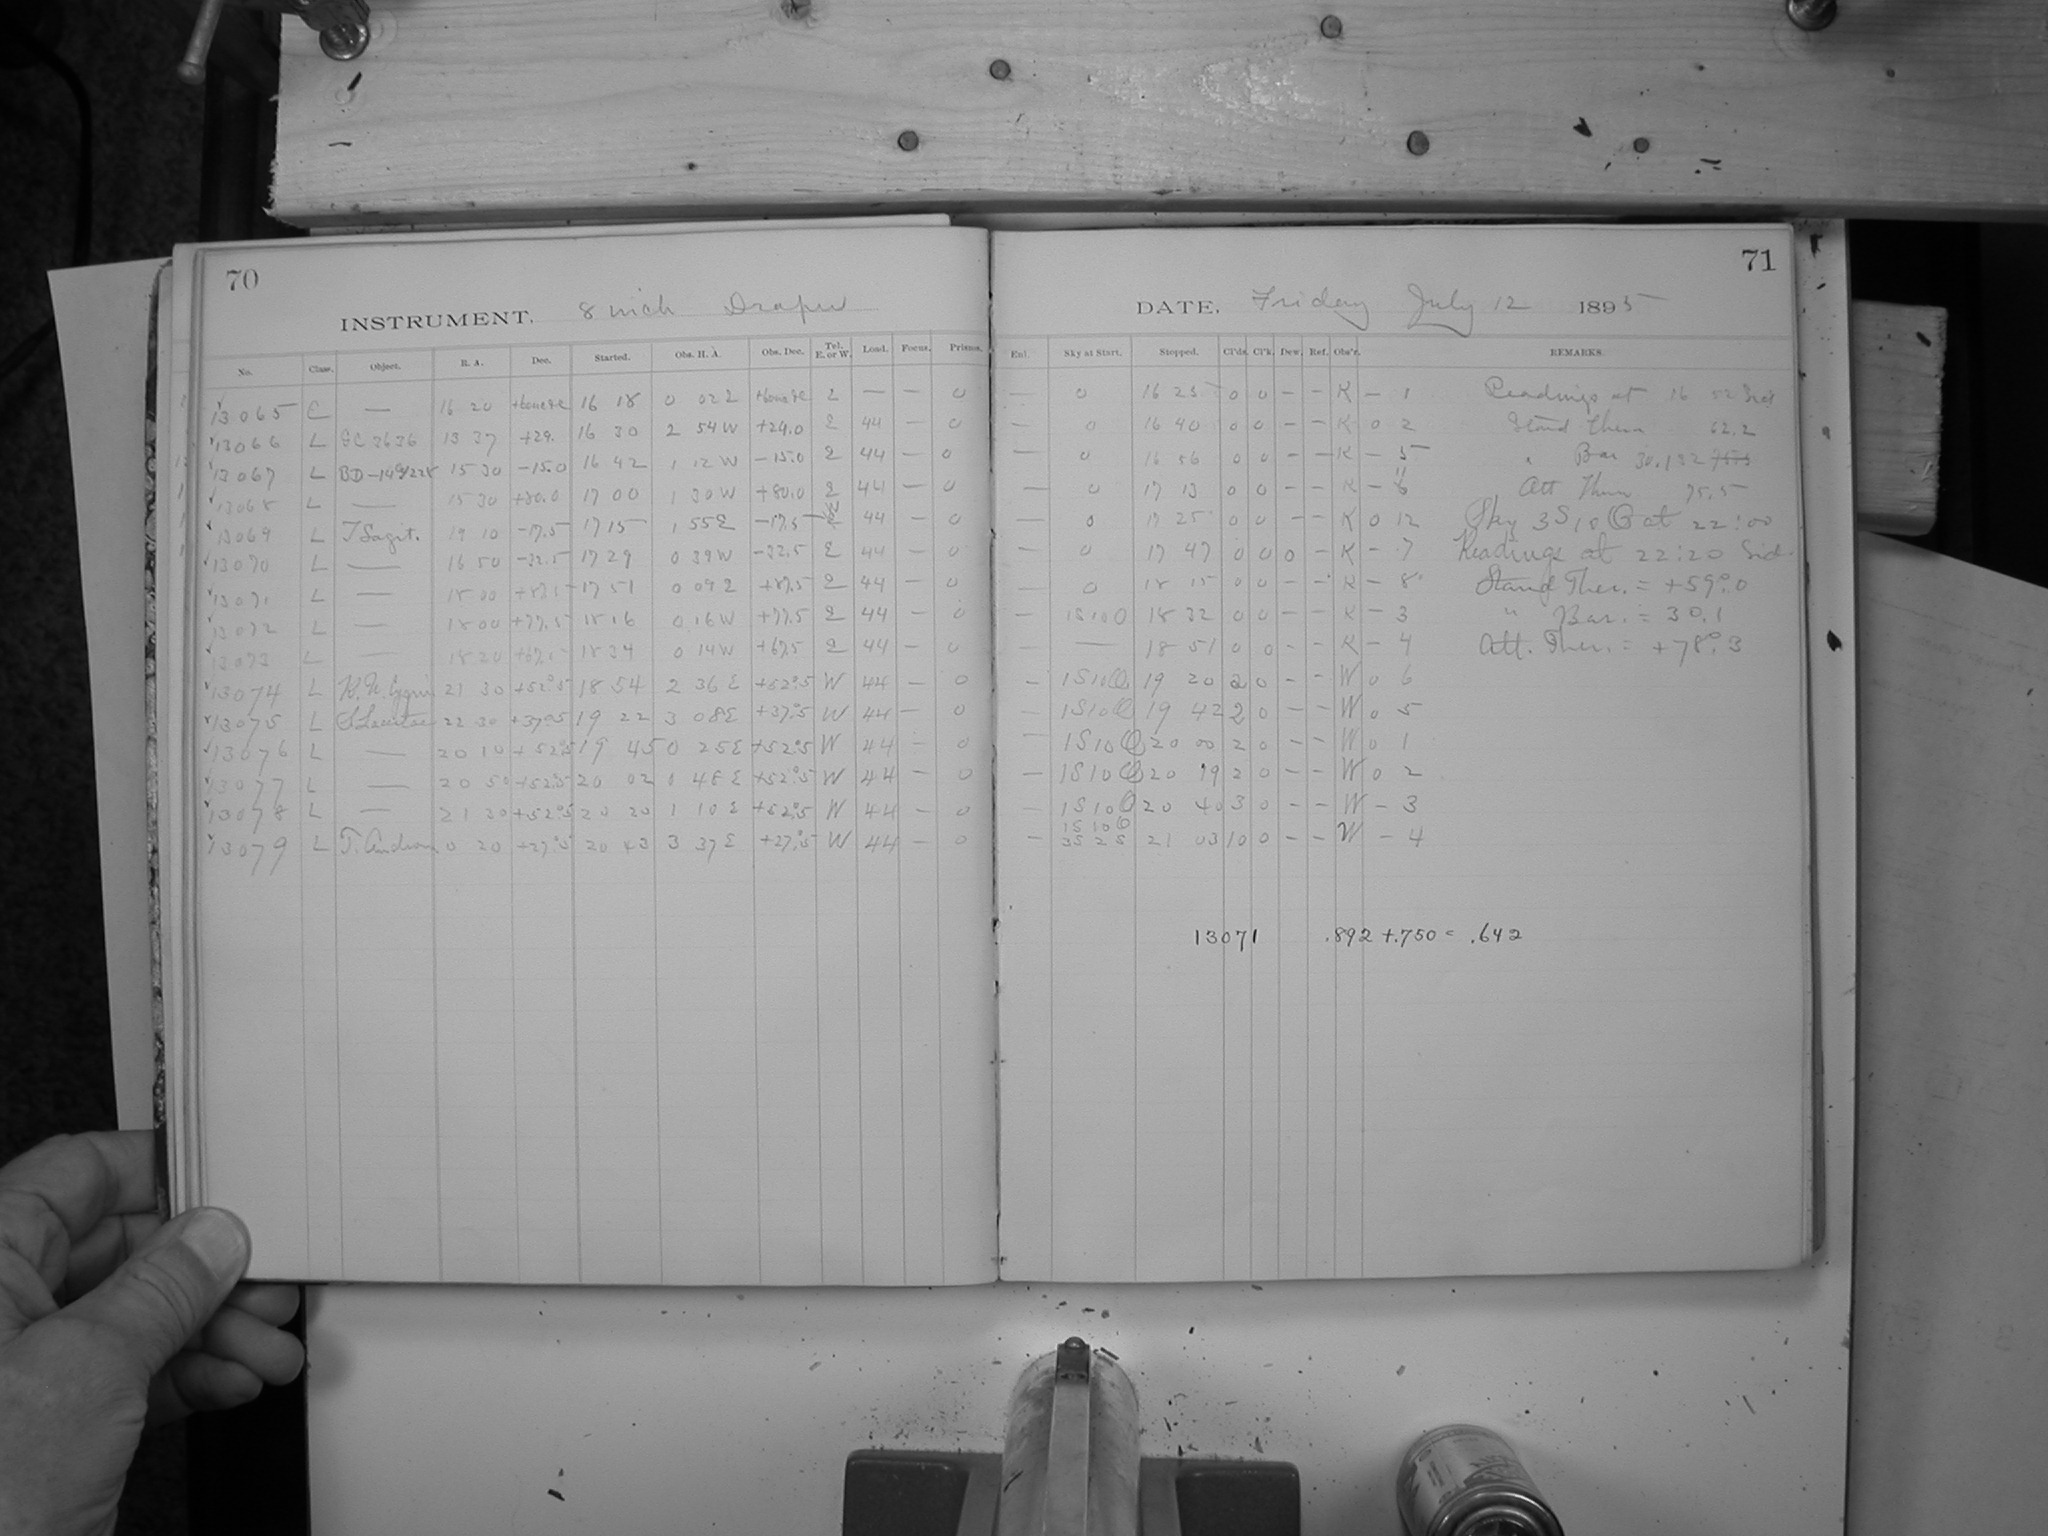 70
INSTRUMENT. 8 inch Draper
No. Class. Object. R. A. Dec. Started. Obs. H. A. Obs. Dec. Tel. E. or W. Load. Focus. Prisms.
13065 C — 16 20 16 18 0 02 E — — 0
13066 L GC 3636 13 37 +29. 16 30 2 54 W +29.0 E 44 — 0
13067 L 15 30 -15.0 16 42 1 12 W -15.0 E 44 — 0
13068 L — 15 30 +80.0 17 00 1 30 W +80.0 E 44 — 0
13069 L T Sagit. 19 10 -17.5 17 15 1 55 E -17.5 W 44 — 0
13070 L — 16 50 -32.5 17 29 0 39 W -32.5 E 44 — 0
13071 L — 18 00 +87.5 17 51 0 09 E +87.5 E 44 — 0
13072 L — 18 00 +77.5 18 16 0 16 W +77.5 E 44 — 0
13073 L — 18 20 +67.5 18 34 0 14 W +67.5 E 44 — 0
13074 L 21 30 +52°.5 18 54 2 36 E +52°.5 W 44 — 0
13075 L S Lacertae 22 30 +37°.5 19 22 3 08 E +37°.5 W 44 — 0
13076 L — 20 10 +52°.5 19 45 0 25 E +52°.5 W 44 — 0
13077 L — 20 50 +52°.5 20 02 0 48 E +52°.5 W 44 — 0
13078 L — 21 30 +52°.5 20 20 1 10 E +52°.5 W 44 — 0
13079 L T. Androm 0 20 +27°.5 20 43 3 37 E +27°.5 W 44 — 0
71
DATE. Friday July 12 1895
Enl. Sky at Start. Stopped. Cl'ds. Cl'k. Dew. Ref. Obs'r. REMARKS.
— 0 16 25 0 0 - - K - 1 Readings at 16 52 Sid
— 0 16 40 0 0 - - K 0 2 Stand Therm 62.2
— 0 16 56 0 0 - - K - 5 " Bar 30.132
— 0 17 13 0 0 - - K - Att Therm 75.5
— 0 17 25 0 0 - - K 0 12 Sky 3S10 at 22:00
— 0 17 47 0 0 0 - K - 7 Readings at 22:20 Sid.
— 0 18 15 0 0 - - K - 8 Stand Ther. = +59°.0
— 1S10 18 32 0 0 - - K - 3 " Bar. = 30.1
— — 18 51 0 0 - - K - 4 Att. Ther. = +78°.3
— 1S10 19 20 2 0 - - W 0 6
— 1S10 19 42 2 0 - - W 0 5
— 1S10 20 00 2 0 - - W 0 1
— 1S10 20 19 2 0 - - W 0 2
— 1S10 20 40 3 0 - - W - 3
— 1S10 3S2S 21 03 10 0 - - W - 4
13071 .892 + .750 = .642